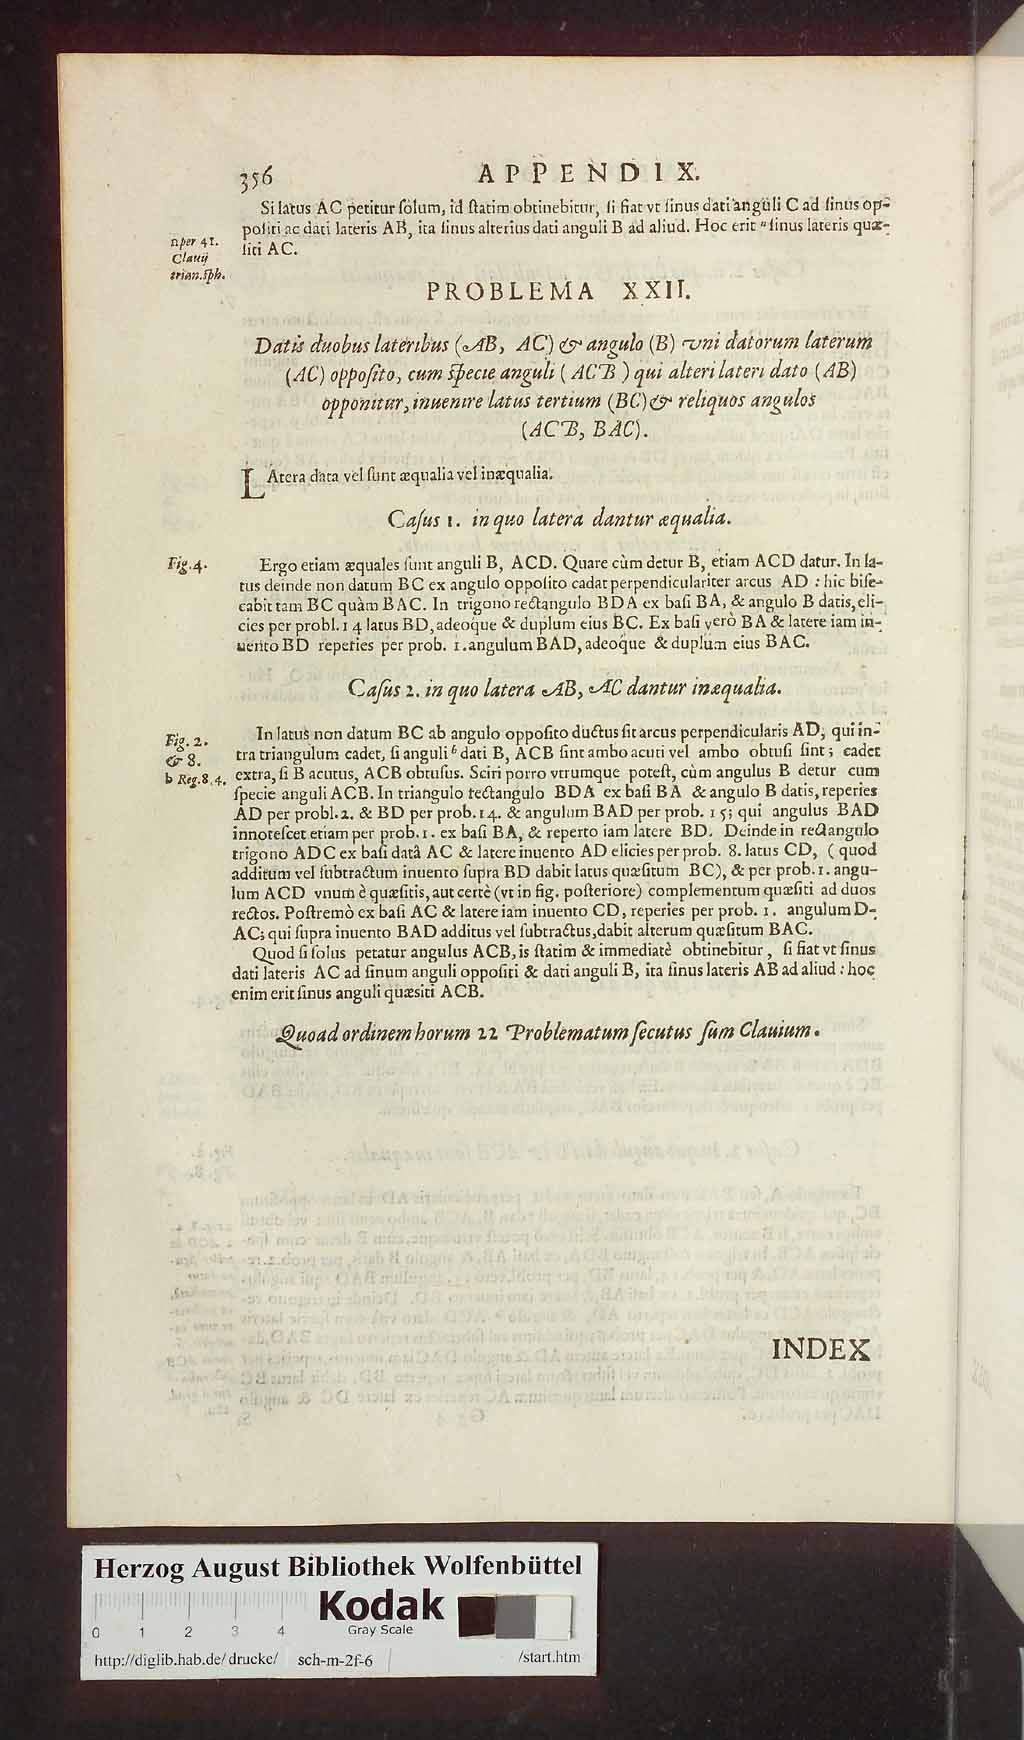 356 APPENDIX.
Si latus AC petitur ſolum, id ſtatim obtinebitur, ſi fiat vt ſinus dati anguli C ad ſinus op-
poſiti ac dati lateris AB, ita ſinus alterius dati anguli B ad aliud. Hoc erit ⁿ ſinus lateris quæ-
ſiti AC.
n per 41.
Clauij
trian. ſph.
PROBLEMA XXII.
Datis duobus lateribus (AB, AC) & angulo (B) vni datorum laterum
(AC) oppoſito, cum ſpecie anguli (ACB) qui alteri lateri dato (AB)
opponitur, inuenire latus tertium (BC) & reliquos angulos
(ACB, BAC).
LAtera data vel ſunt æqualia vel inæqualia.
Caſus 1. in quo latera dantur æqualia.
Fig. 4.
Ergo etiam æquales ſunt anguli B, ACD. Quare cùm detur B, etiam ACD datur. In la-
tus deinde non datum BC ex angulo oppoſito cadat perpendiculariter arcus AD : hic biſe-
cabit tam BC quàm BAC. In trigono rectangulo BDA ex baſi BA, & angulo B datis, eli-
cies per probl. 14 latus BD, adeoque & duplum eius BC. Ex baſi verò BA & latere iam in-
uento BD reperies per prob. 1. angulum BAD, adeoque & duplum eius BAC.
Caſus 2. in quo latera AB, AC dantur inæqualia.
Fig. 2.
& 8.
b Reg. 8, 4.
In latus non datum BC ab angulo oppoſito ductus ſit arcus perpendicularis AD; qui in-
tra triangulum cadet, ſi anguli ᵇ dati B, ACB ſint ambo acuti vel ambo obtuſi ſint; cadet
extra, ſi B acutus, ACB obtuſus. Sciri porro vtrumque poteſt, cùm angulus B detur cum
ſpecie anguli ACB. In triangulo rectangulo BDA ex baſi BA & angulo B datis, reperies
AD per probl. 2. & BD per prob. 14. & angulum BAD per prob. 15; qui angulus BAD
innoteſcet etiam per prob. 1. ex baſi BA, & reperto iam latere BD. Deinde in rectangulo
trigono ADC ex baſi datâ AC & latere inuento AD elicies per prob. 8. latus CD, (quod
additum vel ſubtractum inuento ſupra BD dabit latus quæſitum BC), & per prob. 1. angu-
lum ACD vnum è quæſitis, aut certè (vt in fig. poſteriore) complementum quæſiti ad duos
rectos. Poſtremò ex baſi AC & latere iam inuento CD, reperies per prob. 1. angulum D-
AC; qui ſupra inuento BAD additus vel ſubtractus, dabit alterum quæſitum BAC.
Quod ſi ſolus petatur angulus ACB, is ſtatim & immediatè obtinebitur, ſi fiat vt ſinus
dati lateris AC ad ſinum anguli oppoſiti & dati anguli B, ita ſinus lateris AB ad aliud : hoc
enim erit ſinus anguli quæsiti ACB.
Quoad ordinem horum 22 Problematum ſecutus ſum Clauium.
INDEX
Herzog August Bibliothek Wolfenbüttel
0 1 2 3 4
Kodak
Gray Scale
http://diglib.hab.de/drucke/ sch-m-2f-6 /start.htm